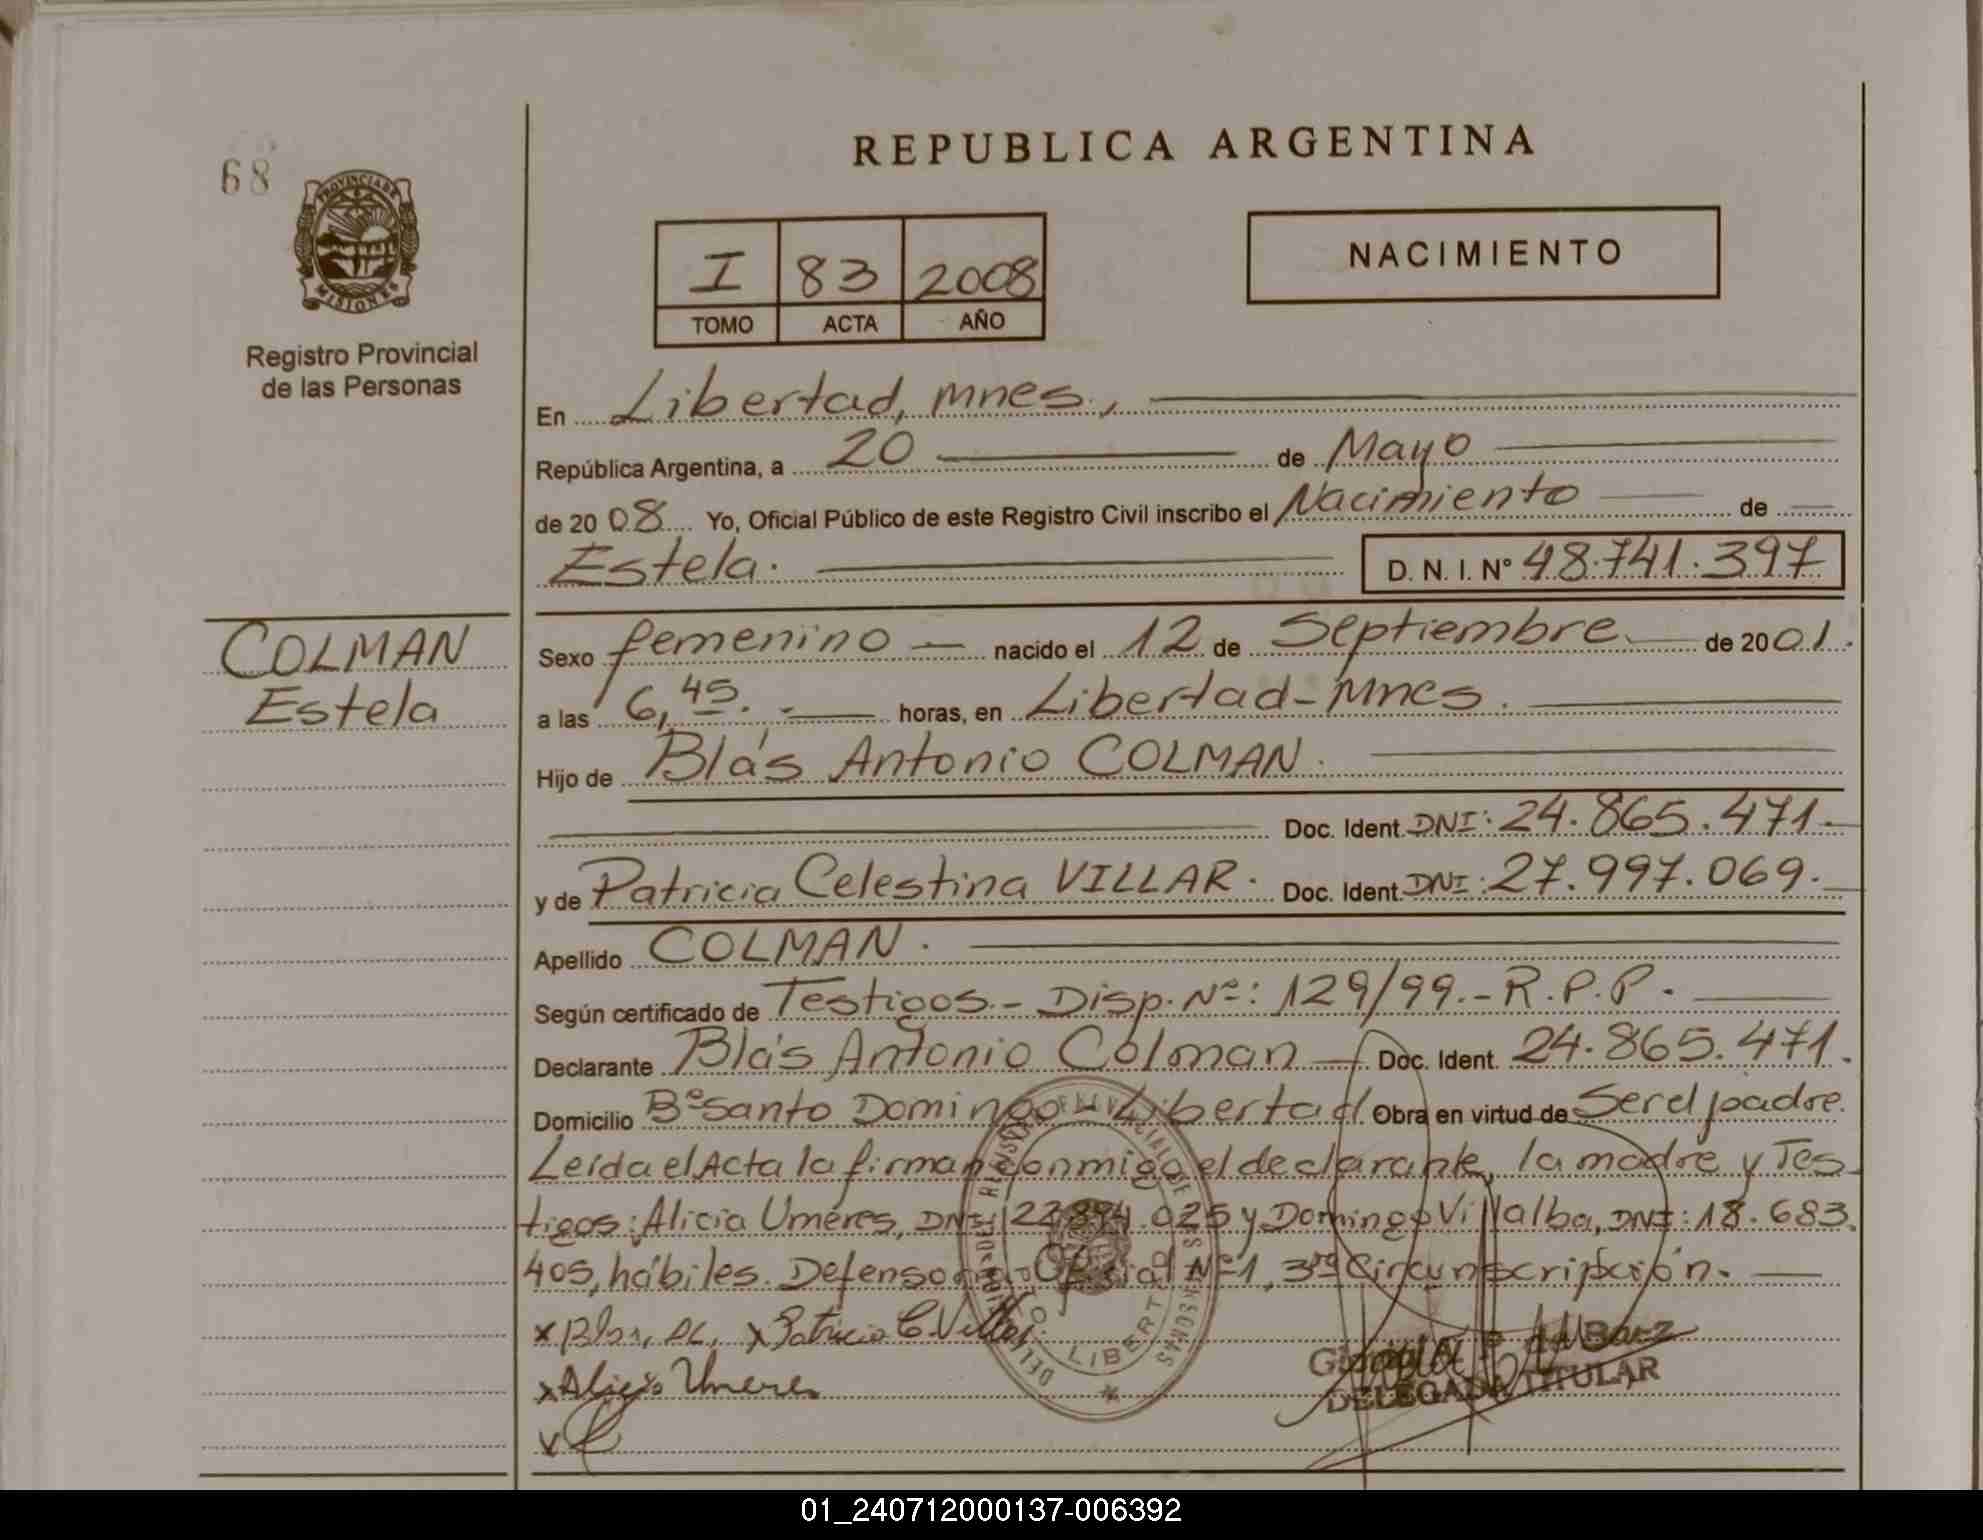 REPUBLICA ARGENTINA
68
PROVINCIA DE
MISIONES
Registro Provincial
de las Personas
I 83 2008
TOMO ACTA AÑO
NACIMIENTO
En Libertad, mnes.,
República Argentina, a 20 de Mayo
de 20 08 Yo, Oficial Público de este Registro Civil inscribo el Nacimiento de
Estela. D. N. I. Nº 48.741.397
COLMAN
Estela
Sexo femenino nacido el 12 de Septiembre de 2001.
a las 6,45. horas, en Libertad-Mnes.
Hijo de Blás Antonio COLMAN.
Doc. Ident. DNI: 24.865.471.
y de Patricia Celestina VILLAR. Doc. Ident. DNI: 27.997.069.
Apellido COLMAN.
Según certificado de Testigos.- Disp. Nº: 129/99.- R.P.P.
Declarante Blás Antonio Colman Doc. Ident. 24.865.471.
Domicilio Bº Santo Domingo - Libertad Obra en virtud de Ser el padre.
Leída el Acta la firman conmigo el declarante, la madre y Tes-
tigos: Alicia Umeres, DNI: 22.894.025 y Domingo Villalba, DNI: 18.683.
405, hábiles. Defensoría Oficial Nº1, 3ra Circunscripción.
x Patricia C. Villar
x Alicia Umeres
LIBERTAD
DELEGADA TITULAR
01_240712000137-006392